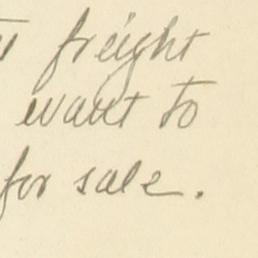 freight
want to
for sale.